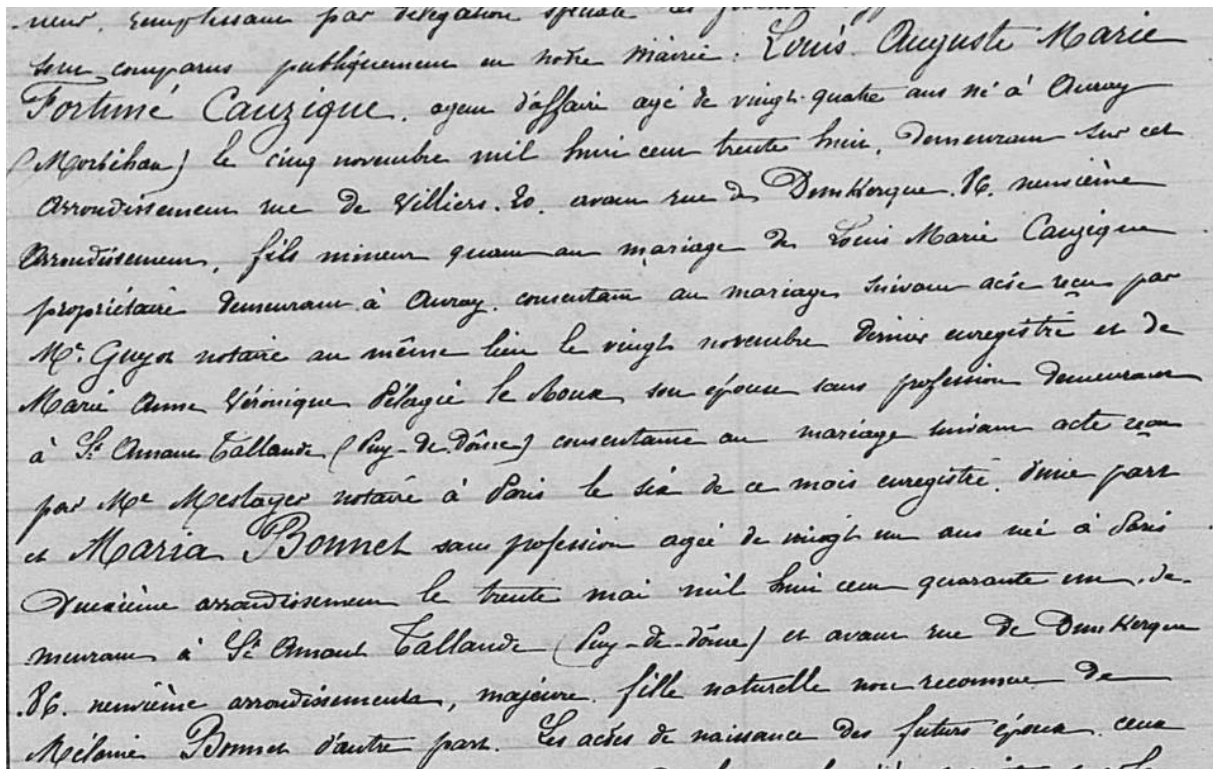 -neur, remplissant par délégation spéciale les
sont comparus publiquement en notre mairie: Louis Auguste Marie
Fortuné Cauzique, agent d'affaire agé de vingt-quatre ans né à Auray
(Morbihan) le cinq novembre mil huit cent trente huit, demeurant sur cet
arrondissement rue de Villiers. 20. avant rue de Dunkerque. 86. neuvième
arrondissement, fils mineur quant au mariage de Louis Marie Cauzique
propriétaire demeurant à Auray, consentant au mariage suivant acte reçu par
Me. Guyot notaire au même lieu le vingt novembre dernier enregistré et de
Marie Anne Véronique Pélagie le Roux son épouse sans profession demeurant
à St Amant Tallande (Puy-de-Dôme) consentante au mariage suivant acte reçu
par Me Mestayer notaire à Paris le six de ce mois enregistré, d'une part
et Maria Bonnet sans profession agée de vingt un ans née à Paris
deuxième arrondissement le trente mai mil huit cent quarante un, de-
meurant à St Amant Tallande (Puy-de-dôme) et avant rue de Dunkerque
.86. neuvième arrondissements, majeure, fille naturelle non reconnue de
Mélanie Bonnet d'autre part. Les actes de naissance des futurs époux, ceux